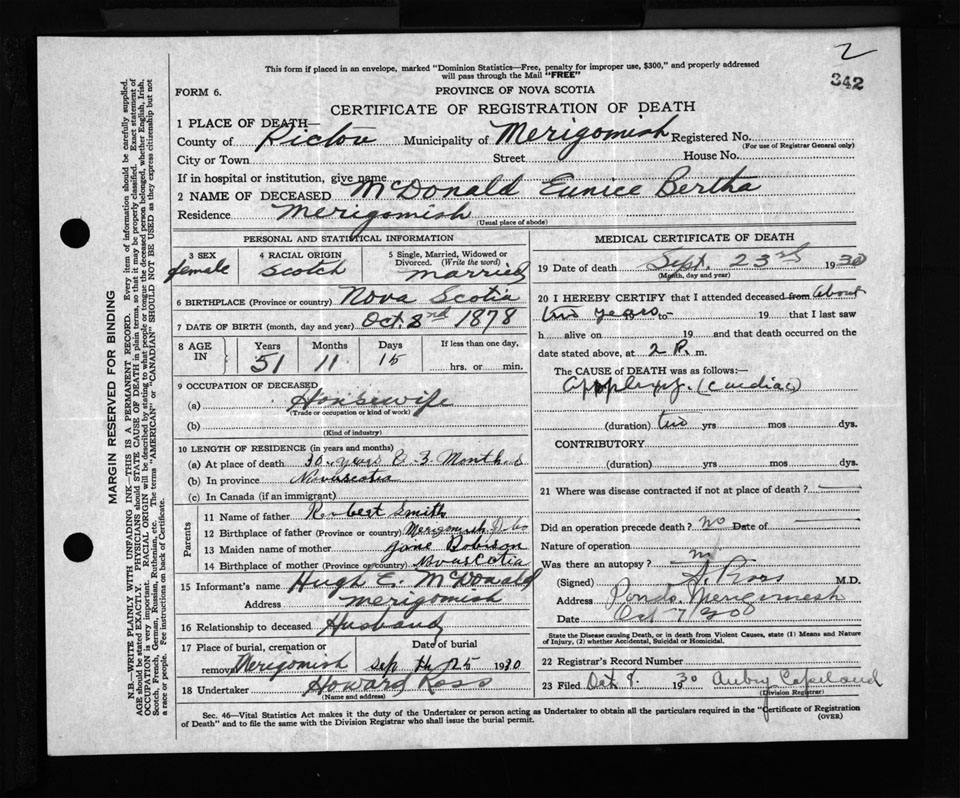 2
342
This form if placed in an envelope, marked "Dominion Statistics—Free, penalty for improper use, $300," and properly addressed
will pass through the Mail "FREE"
FORM 6.
PROVINCE OF NOVA SCOTIA
CERTIFICATE OF REGISTRATION OF DEATH
1 PLACE OF DEATH—
County of Pictou Municipality of Merigomish Registered No.
(For use of Registrar General only)
City or Town Street House No.
If in hospital or institution, give name
2 NAME OF DECEASED McDonald Eunice Bertha
Residence Merigomish
(Usual place of abode)
PERSONAL AND STATISTICAL INFORMATION
3 SEX female
4 RACIAL ORIGIN Scotch
5 Single, Married, Widowed or
Divorced. (Write the word) married
6 BIRTHPLACE (Province or country) Nova Scotia
7 DATE OF BIRTH (month, day and year) Oct. 8 1878
8 AGE IN
Years Months Days If less than one day,
51 11 15 hrs. or min.
9 OCCUPATION OF DECEASED
(a) Housewife
(Trade or occupation or kind of work)
(b)
(Kind of industry)
10 LENGTH OF RESIDENCE (in years and months)
(a) At place of death 30 years & 3 Months
(b) In province Novascotia
(c) In Canada (if an immigrant)
Parents
11 Name of father Robert Smith
12 Birthplace of father (Province or country) Merigomish
13 Maiden name of mother Jane Robison
14 Birthplace of mother (Province or country) Novascotia
15 Informant's name Hugh C. McDonald
Address Merigomish
16 Relationship to deceased Husband
17 Place of burial, cremation or Date of burial
removal Merigomish Sep th 25 1930
18 Undertaker Howard Ross
(Name and address)
MEDICAL CERTIFICATE OF DEATH
19 Date of death Sept. 23rd 1930
(Month, day and year)
20 I HEREBY CERTIFY that I attended deceased from About
two years to 19 that I last saw
h alive on 19 and that death occurred on the
date stated above, at 2 P. m.
The CAUSE OF DEATH was as follows:—
(cardiac)
(duration) two yrs mos dys.
CONTRIBUTORY
(duration) yrs mos dys.
21 Where was disease contracted if not at place of death?
Did an operation precede death? no Date of
Nature of operation
Was there an autopsy?
(Signed) Ross M.D.
Address Ponds Merigomish
Date Oct 7/30
State the Disease causing Death, or in death from Violent Causes, state (1) Means and Nature
of Injury, (2) whether Accidental, Suicidal or Homicidal.
22 Registrar's Record Number
23 Filed Oct 9. 1930 Aubry Copeland
(Division Registrar)
Sec. 46—Vital Statistics Act makes it the duty of the Undertaker or person acting as Undertaker to obtain all the particulars required in the "Certificate of Registration
of Death" and to file the same with the Division Registrar who shall issue the burial permit.
(OVER)
MARGIN RESERVED FOR BINDING
N.B.—WRITE PLAINLY WITH UNFADING INK—THIS IS A PERMANENT RECORD. Every item of information should be carefully supplied.
AGE should be stated EXACTLY. PHYSICIANS should STATE CAUSE OF DEATH in plain terms, so that it may be properly classified. Exact statement of
OCCUPATION is very important. RACIAL ORIGIN will be described by stating to what people or tongue the deceased person belonged, whether English, Irish,
Scotch, French, German, Russian, Ruthenian, etc. The terms "AMERICAN" or "CANADIAN" SHOULD NOT BE USED as they express citizenship but not
a race or people. Fee instructions on back of Certificate.